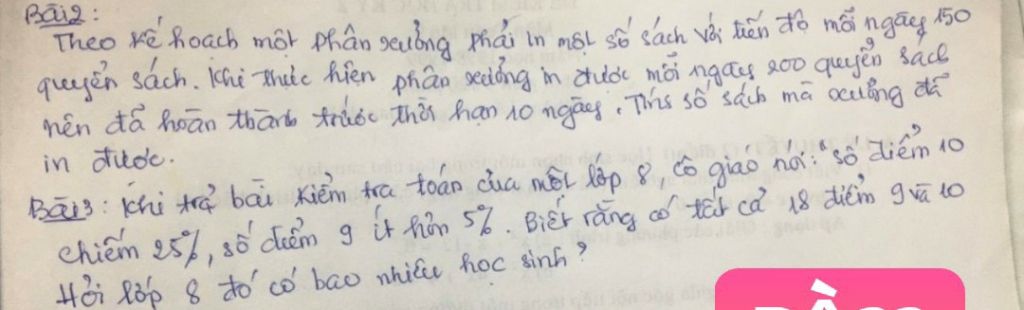 Bài 2:
Theo kế hoạch một phân xưởng phải in một số sách với tiến độ mỗi ngày 150
quyển sách. Khi thực hiện phân xưởng in được mỗi ngày 200 quyển sách
nên đã hoàn thành trước thời hạn 10 ngày. Tính số sách mà xưởng đã
in được.
Bài 3: Khi trả bài kiểm tra toán của một lớp 8, cô giáo nói: "số điểm 10
chiếm 25%, số điểm 9 ít hơn 5%. Biết rằng có tất cả 18 điểm 9 và 10
Hỏi lớp 8 đó có bao nhiêu học sinh?